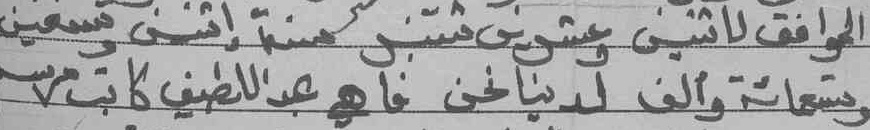 الموافق لاثنين وعشرين شتنبر سنة اثنين وتسعين
وتسعمائة وألف لدينا نحن فاهي عبد اللطيف كاتب